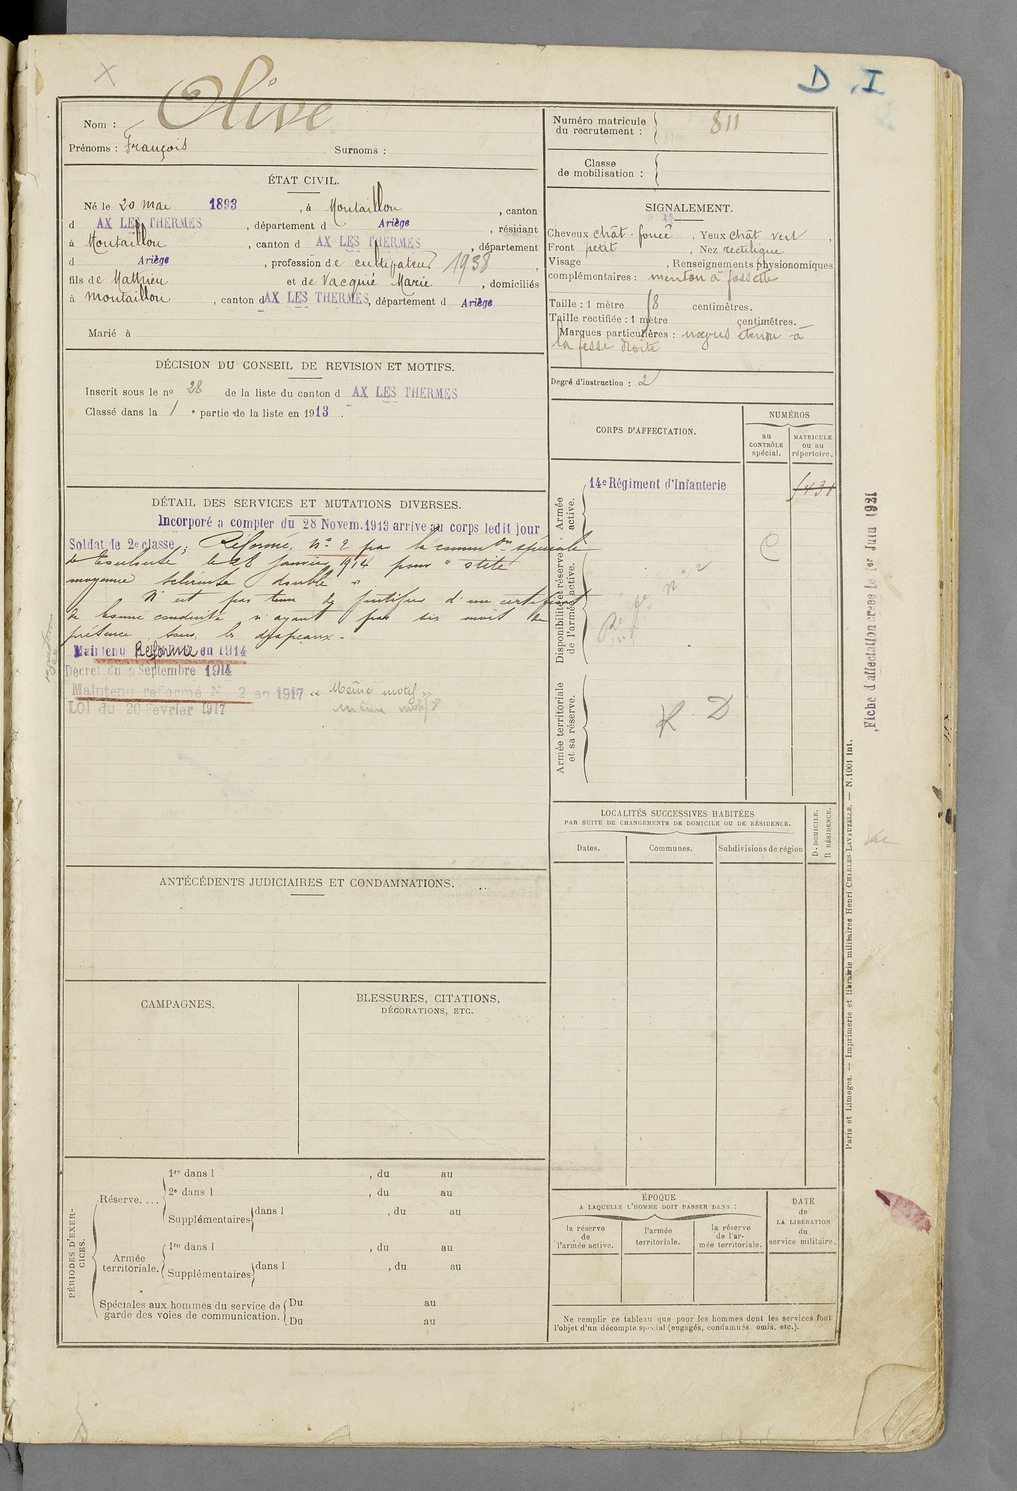 X
D . I
Nom : Olive
Prénoms : François Surnoms :
Numéro matricule du recrutement : 811
Classe de mobilisation :
ÉTAT CIVIL.
Né le 20 mai 1893, à Montaillou, canton
d AX LES THERMES, département d Ariège, résidant
à Montaillou, canton d AX LES THERMES, département
d Ariège, profession de cultivateur 1938,
fils de Mathieu et de Vacquié Marie, domiciliés
à Montaillou, canton d AX LES THERMES, département d Ariège
Marié à
SIGNALEMENT.
Cheveux chât. foncé, Yeux chât vert,
Front petit, Nez rectiligne
Visage , Renseignements physionomiques
complémentaires : menton à fossette
Taille : 1 mètre centimètres.
Taille rectifiée : 1 mètre centimètres.
Marques particulières : à
la fesse droite
Degré d'instruction : 2
DÉCISION DU CONSEIL DE REVISION ET MOTIFS.
Inscrit sous le nº 28 de la liste du canton d AX LES THERMES
Classé dans la 1 e partie de la liste en 1913.
DÉTAIL DES SERVICES ET MUTATIONS DIVERSES.
Incorporé a compter du 28 Novem. 1913 arrivé au corps ledit jour
Soldat de 2e classe, Réformé, Nº 2 par la comm on spéciale
de Toulouse, le 28 Janvier 1914 pour " otite
moyenne double "
N'est pas tenu de justifier d'un certificat
de bonne conduite n'ayant pas six mois de
présence sous les drapeaux.
Maintenu Réformé en 1914
Décret du 9 Septembre 1914
Maintenu réformé Nº 2 en 1917 " Même motif "
LOI du 20 Février 1917 Même motif
CORPS D'AFFECTATION.
NUMÉROS
au CONTRÔLE spécial.
MATRICULE ou au répertoire.
Armée active.
14e Régiment d'Infanterie
Disponibilité et réserve de l'armée active.
C
Réf. nº 2
Armée territoriale et sa réserve.
R D
Fiche d'affectation créée le 1er Juin 1921
LOCALITÉS SUCCESSIVES HABITÉES
PAR SUITE DE CHANGEMENTS DE DOMICILE OU DE RÉSIDENCE.
Dates. Communes. Subdivisions de région
D. DOMICILE.
R RÉSIDENCE.
ANTÉCÉDENTS JUDICIAIRES ET CONDAMNATIONS.
CAMPAGNES.
BLESSURES, CITATIONS,
DÉCORATIONS, ETC.
PÉRIODES D'EXERCICES.
Réserve....
1re dans l , du au
2e dans l , du au
Supplémentaires dans l , du au
Armée territoriale.
1re dans l , du au
Supplémentaires dans l , du au
Spéciales aux hommes du service de garde des voies de communication.
Du au
Du au
ÉPOQUE
A LAQUELLE L'HOMME DOIT PASSER DANS :
la réserve de l'armée active.
l'armée territoriale.
la réserve de l'armée territoriale.
DATE de LA LIBÉRATION du service militaire.
Ne remplir ce tableau que pour les hommes dont les services font
l'objet d'un décompte spécial (engagés, condamnés, omis, etc.).
Paris et Limoges. — Imprimerie et librairie militaires Henri CHARLES-LAVAUZELLE. — N. 1001 int.